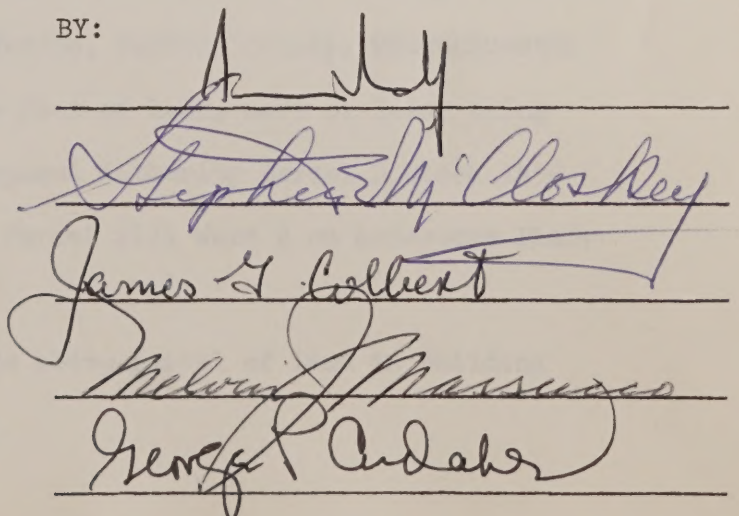 BY:
Stephen E McCloskey
James G Colbert
Melvin J Massucco
George P Cudaher